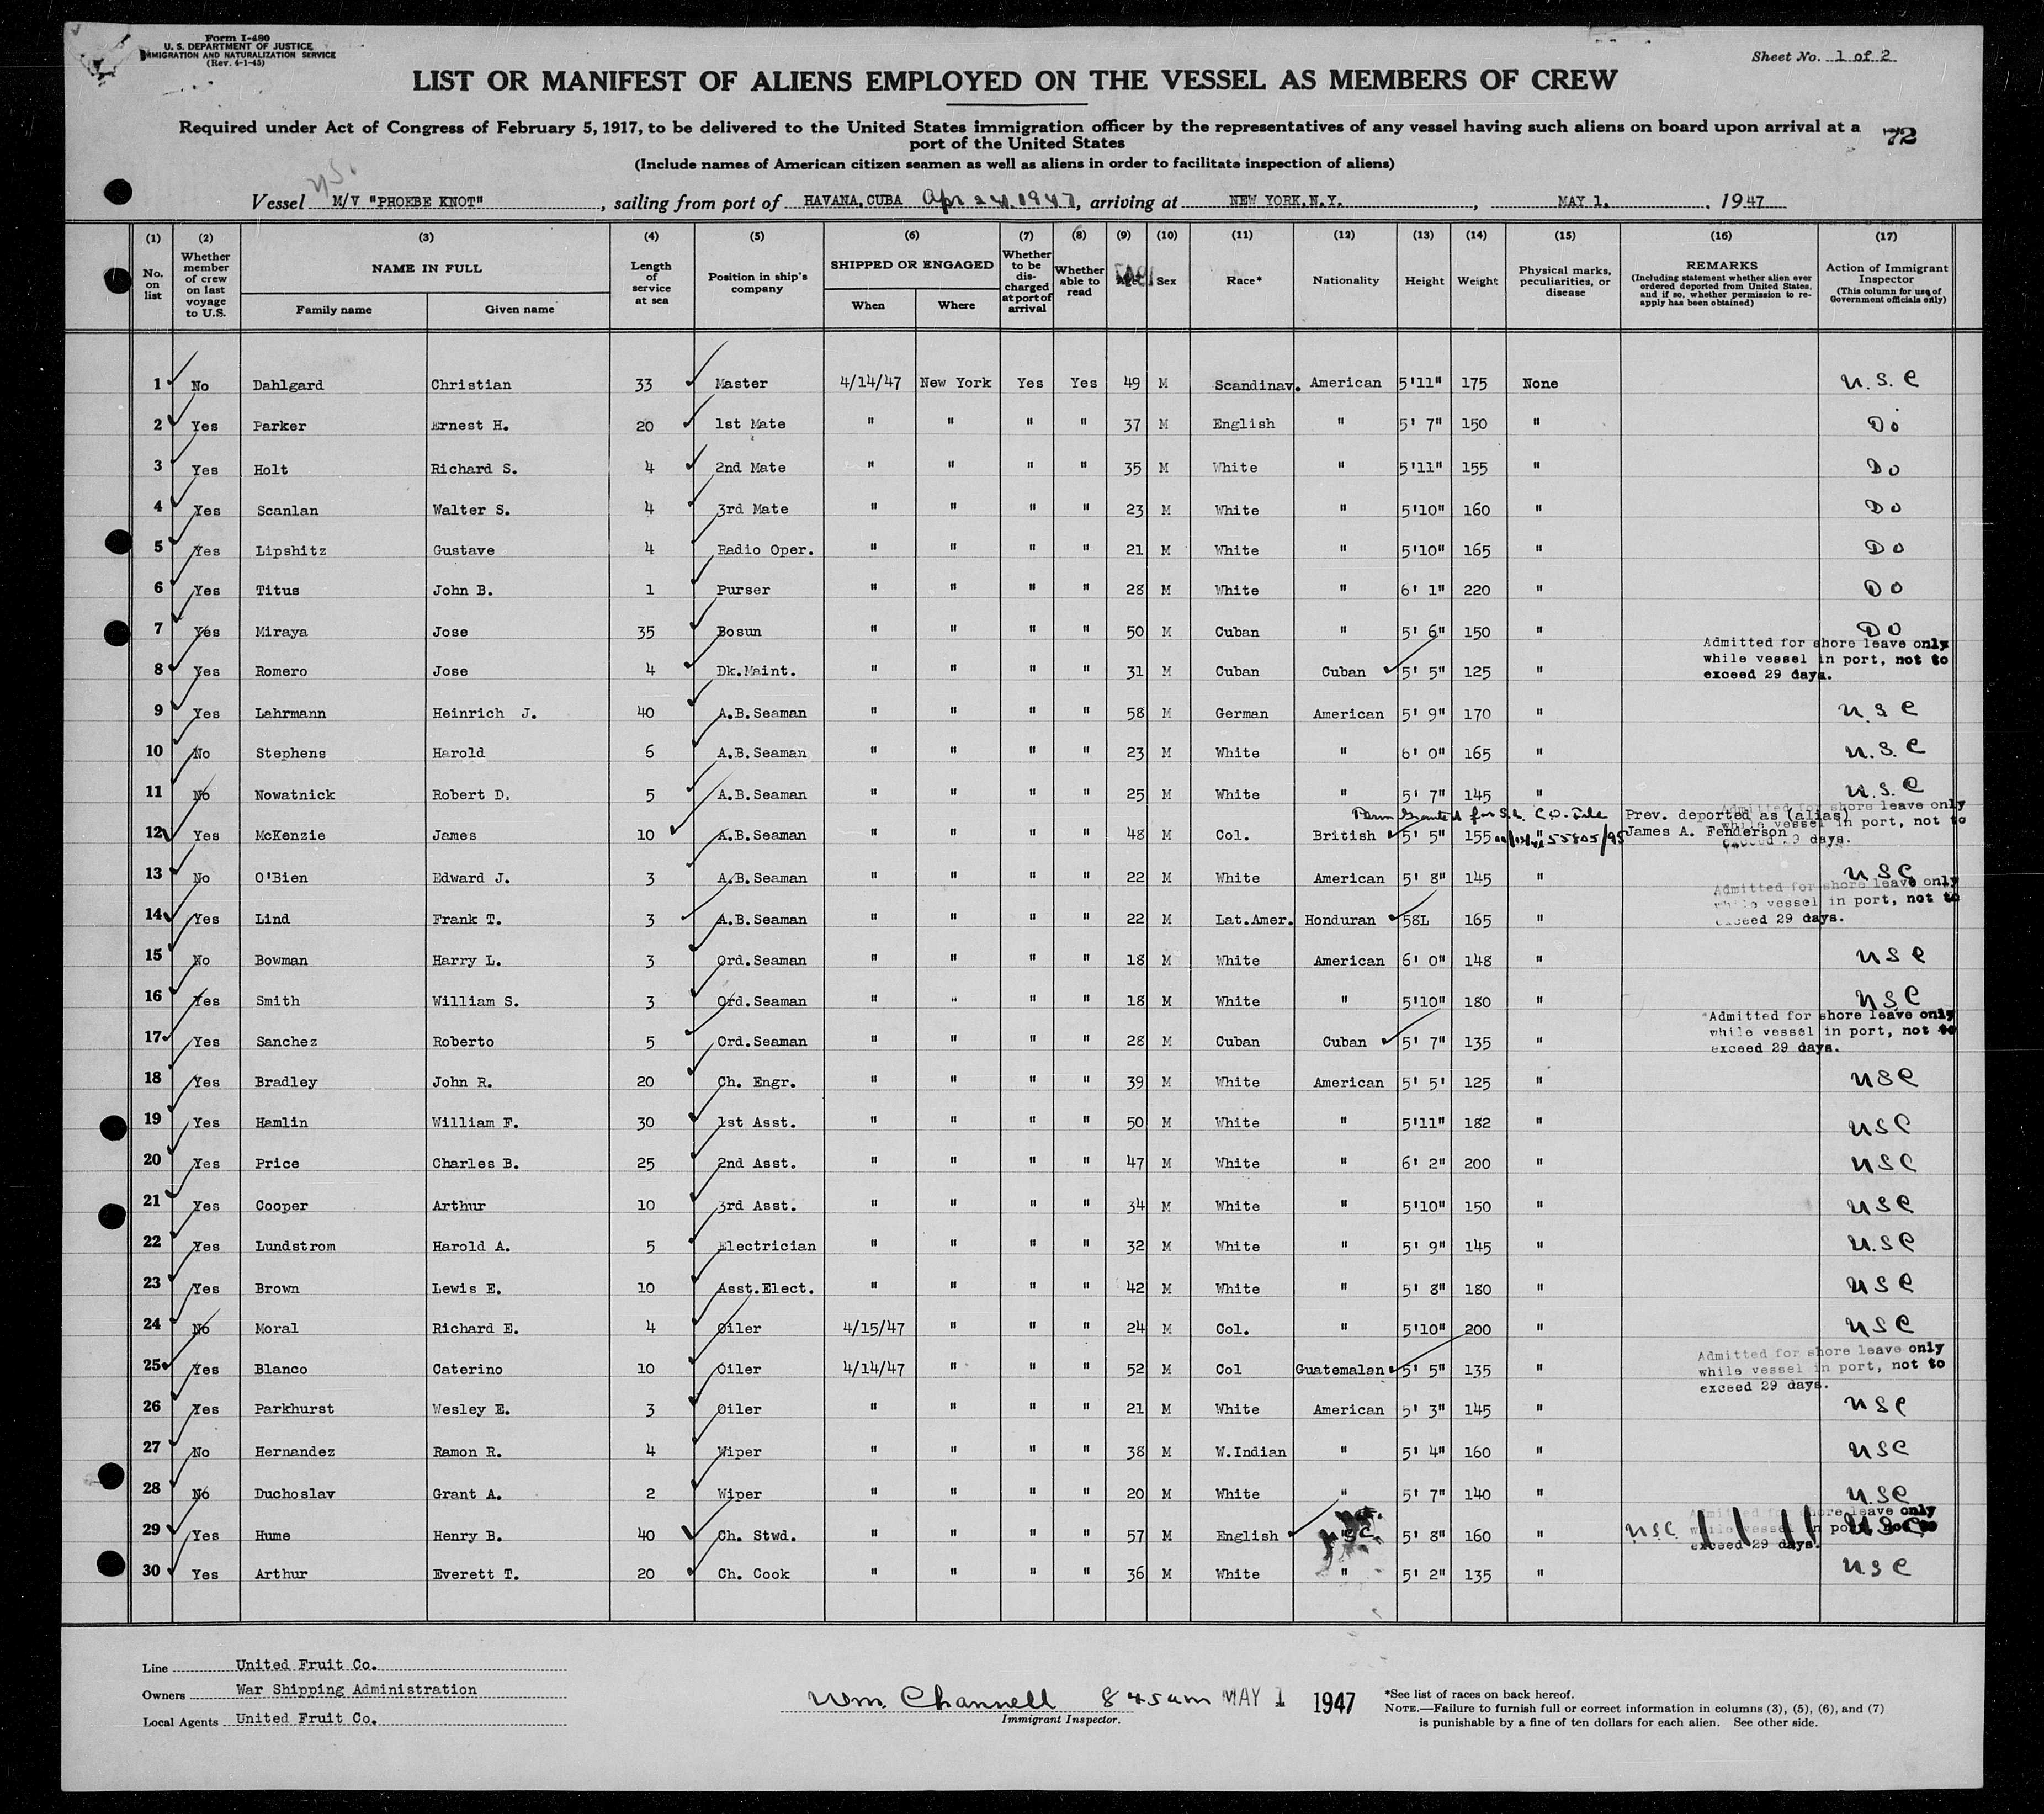 Form I-480
U. S. DEPARTMENT OF JUSTICE
IMMIGRATION AND NATURALIZATION SERVICE
(Rev. 4-1-45)
Sheet No. 1 of 2
LIST OR MANIFEST OF ALIENS EMPLOYED ON THE VESSEL AS MEMBERS OF CREW
Required under Act of Congress of February 5, 1917, to be delivered to the United States immigration officer by the representatives of any vessel having such aliens on board upon arrival at a
port of the United States
72
(Include names of American citizen seamen as well as aliens in order to facilitate inspection of aliens)
Vessel M/V "PHOEBE KNOT", sailing from port of HAVANA, CUBA Apr 24, 1947, arriving at NEW YORK, N.Y., MAY 1, 1947
(1) (2) (3) (4) (5) (6) (7) (8) (9) (10) (11) (12) (13) (14) (15) (16) (17)
No. on list
Whether member of crew on last voyage to U.S.
NAME IN FULL
Family name Given name
Length of service at sea
Position in ship's company
SHIPPED OR ENGAGED
When Where
Whether to be discharged at port of arrival
Whether able to read
Sex
Race*
Nationality
Height
Weight
Physical marks, peculiarities, or disease
REMARKS
(Including statement whether alien ever ordered deported from United States, and if so, whether permission to reapply has been obtained)
Action of Immigrant Inspector
(This column for use of Government officials only)
1 No Dahlgard Christian 33 Master 4/14/47 New York Yes Yes 49 M Scandinav. American 5'11" 175 None U.S.C
2 Yes Parker Ernest H. 20 1st Mate " " " " 37 M English " 5' 7" 150 " Do
3 Yes Holt Richard S. 4 2nd Mate " " " " 35 M White " 5'11" 155 " Do
4 Yes Scanlan Walter S. 4 3rd Mate " " " " 23 M White " 5'10" 160 " Do
5 Yes Lipshitz Gustave 4 Radio Oper. " " " " 21 M White " 5'10" 165 " Do
6 Yes Titus John B. 1 Purser " " " " 28 M White " 6' 1" 220 " Do
7 Yes Miraya Jose 35 Bosun " " " " 50 M Cuban " 5' 6" 150 " Do
8 Yes Romero Jose 4 Dk.Maint. " " " " 31 M Cuban Cuban 5' 5" 125 " Admitted for shore leave only while vessel in port, not to exceed 29 days.
9 Yes Lahrmann Heinrich J. 40 A.B.Seaman " " " " 58 M German American 5' 9" 170 " U.S.C
10 No Stephens Harold 6 A.B.Seaman " " " " 23 M White " 6' 0" 165 " U.S.C
11 No Nowatnick Robert D. 5 A.B.Seaman " " " " 25 M White " 5' 7" 145 " U.S.C
12 Yes McKenzie James 10 A.B.Seaman " " " " 48 M Col. British 5' 5" 155 " 55805/95 Prev. deported as (alias) James A. Fenderson Admitted for shore leave only while vessel in port, not to exceed 29 days.
13 No O'Bien Edward J. 3 A.B.Seaman " " " " 22 M White American 5' 8" 145 " USC
14 Yes Lind Frank T. 3 A.B.Seaman " " " " 22 M Lat.Amer. Honduran 58L 165 Admitted for shore leave only while vessel in port, not to exceed 29 days.
15 No Bowman Harry L. 3 Ord.Seaman " " " " 18 M White American 6' 0" 148 " USC
16 Yes Smith William S. 3 Ord.Seaman " " " " 18 M White " 5'10" 180 " USC
17 Yes Sanchez Roberto 5 Ord.Seaman " " " " 28 M Cuban Cuban 5' 7" 135 " Admitted for shore leave only while vessel in port, not to exceed 29 days.
18 Yes Bradley John R. 20 Ch. Engr. " " " " 39 M White American 5' 5' 125 " USC
19 Yes Hamlin William F. 30 1st Asst. " " " " 50 M White " 5'11" 182 " USC
20 Yes Price Charles B. 25 2nd Asst. " " " " 47 M White " 6' 2" 200 " USC
21 Yes Cooper Arthur 10 3rd Asst. " " " " 34 M White " 5'10" 150 " USC
22 Yes Lundstrom Harold A. 5 Electrician " " " " 32 M White " 5' 9" 145 " U.SC
23 Yes Brown Lewis E. 10 Asst.Elect. " " " " 42 M White " 5' 8" 180 " USC
24 No Moral Richard E. 4 Oiler 4/15/47 " " " 24 M Col. " 5'10" 200 " USC
25 Yes Blanco Caterino 10 Oiler 4/14/47 " " " 52 M Col Guatemalan 5' 5" 135 " Admitted for shore leave only while vessel in port, not to exceed 29 days.
26 Yes Parkhurst Wesley E. 3 Oiler " " " " 21 M White American 5' 3" 145 " USC
27 No Hernandez Ramon R. 4 Wiper " " " " 38 M W.Indian " 5' 4" 160 " USC
28 No Duchoslav Grant A. 2 Wiper " " " " 20 M White " 5' 7" 140 " U.SC
29 Yes Hume Henry B. 40 Ch. Stwd. " " " " 57 M English 5' 8" 160 " U.S.C. Admitted for shore leave only while vessel in port, not to exceed 29 days. USC
30 Yes Arthur Everett T. 20 Ch. Cook " " " " 36 M White " 5' 2" 135 " U.S.C
Line United Fruit Co.
Owners War Shipping Administration
Local Agents United Fruit Co.
Wm. Channell 845am MAY 1 1947
Immigrant Inspector.
*See list of races on back hereof.
NOTE.—Failure to furnish full or correct information in columns (3), (5), (6), and (7)
is punishable by a fine of ten dollars for each alien. See other side.